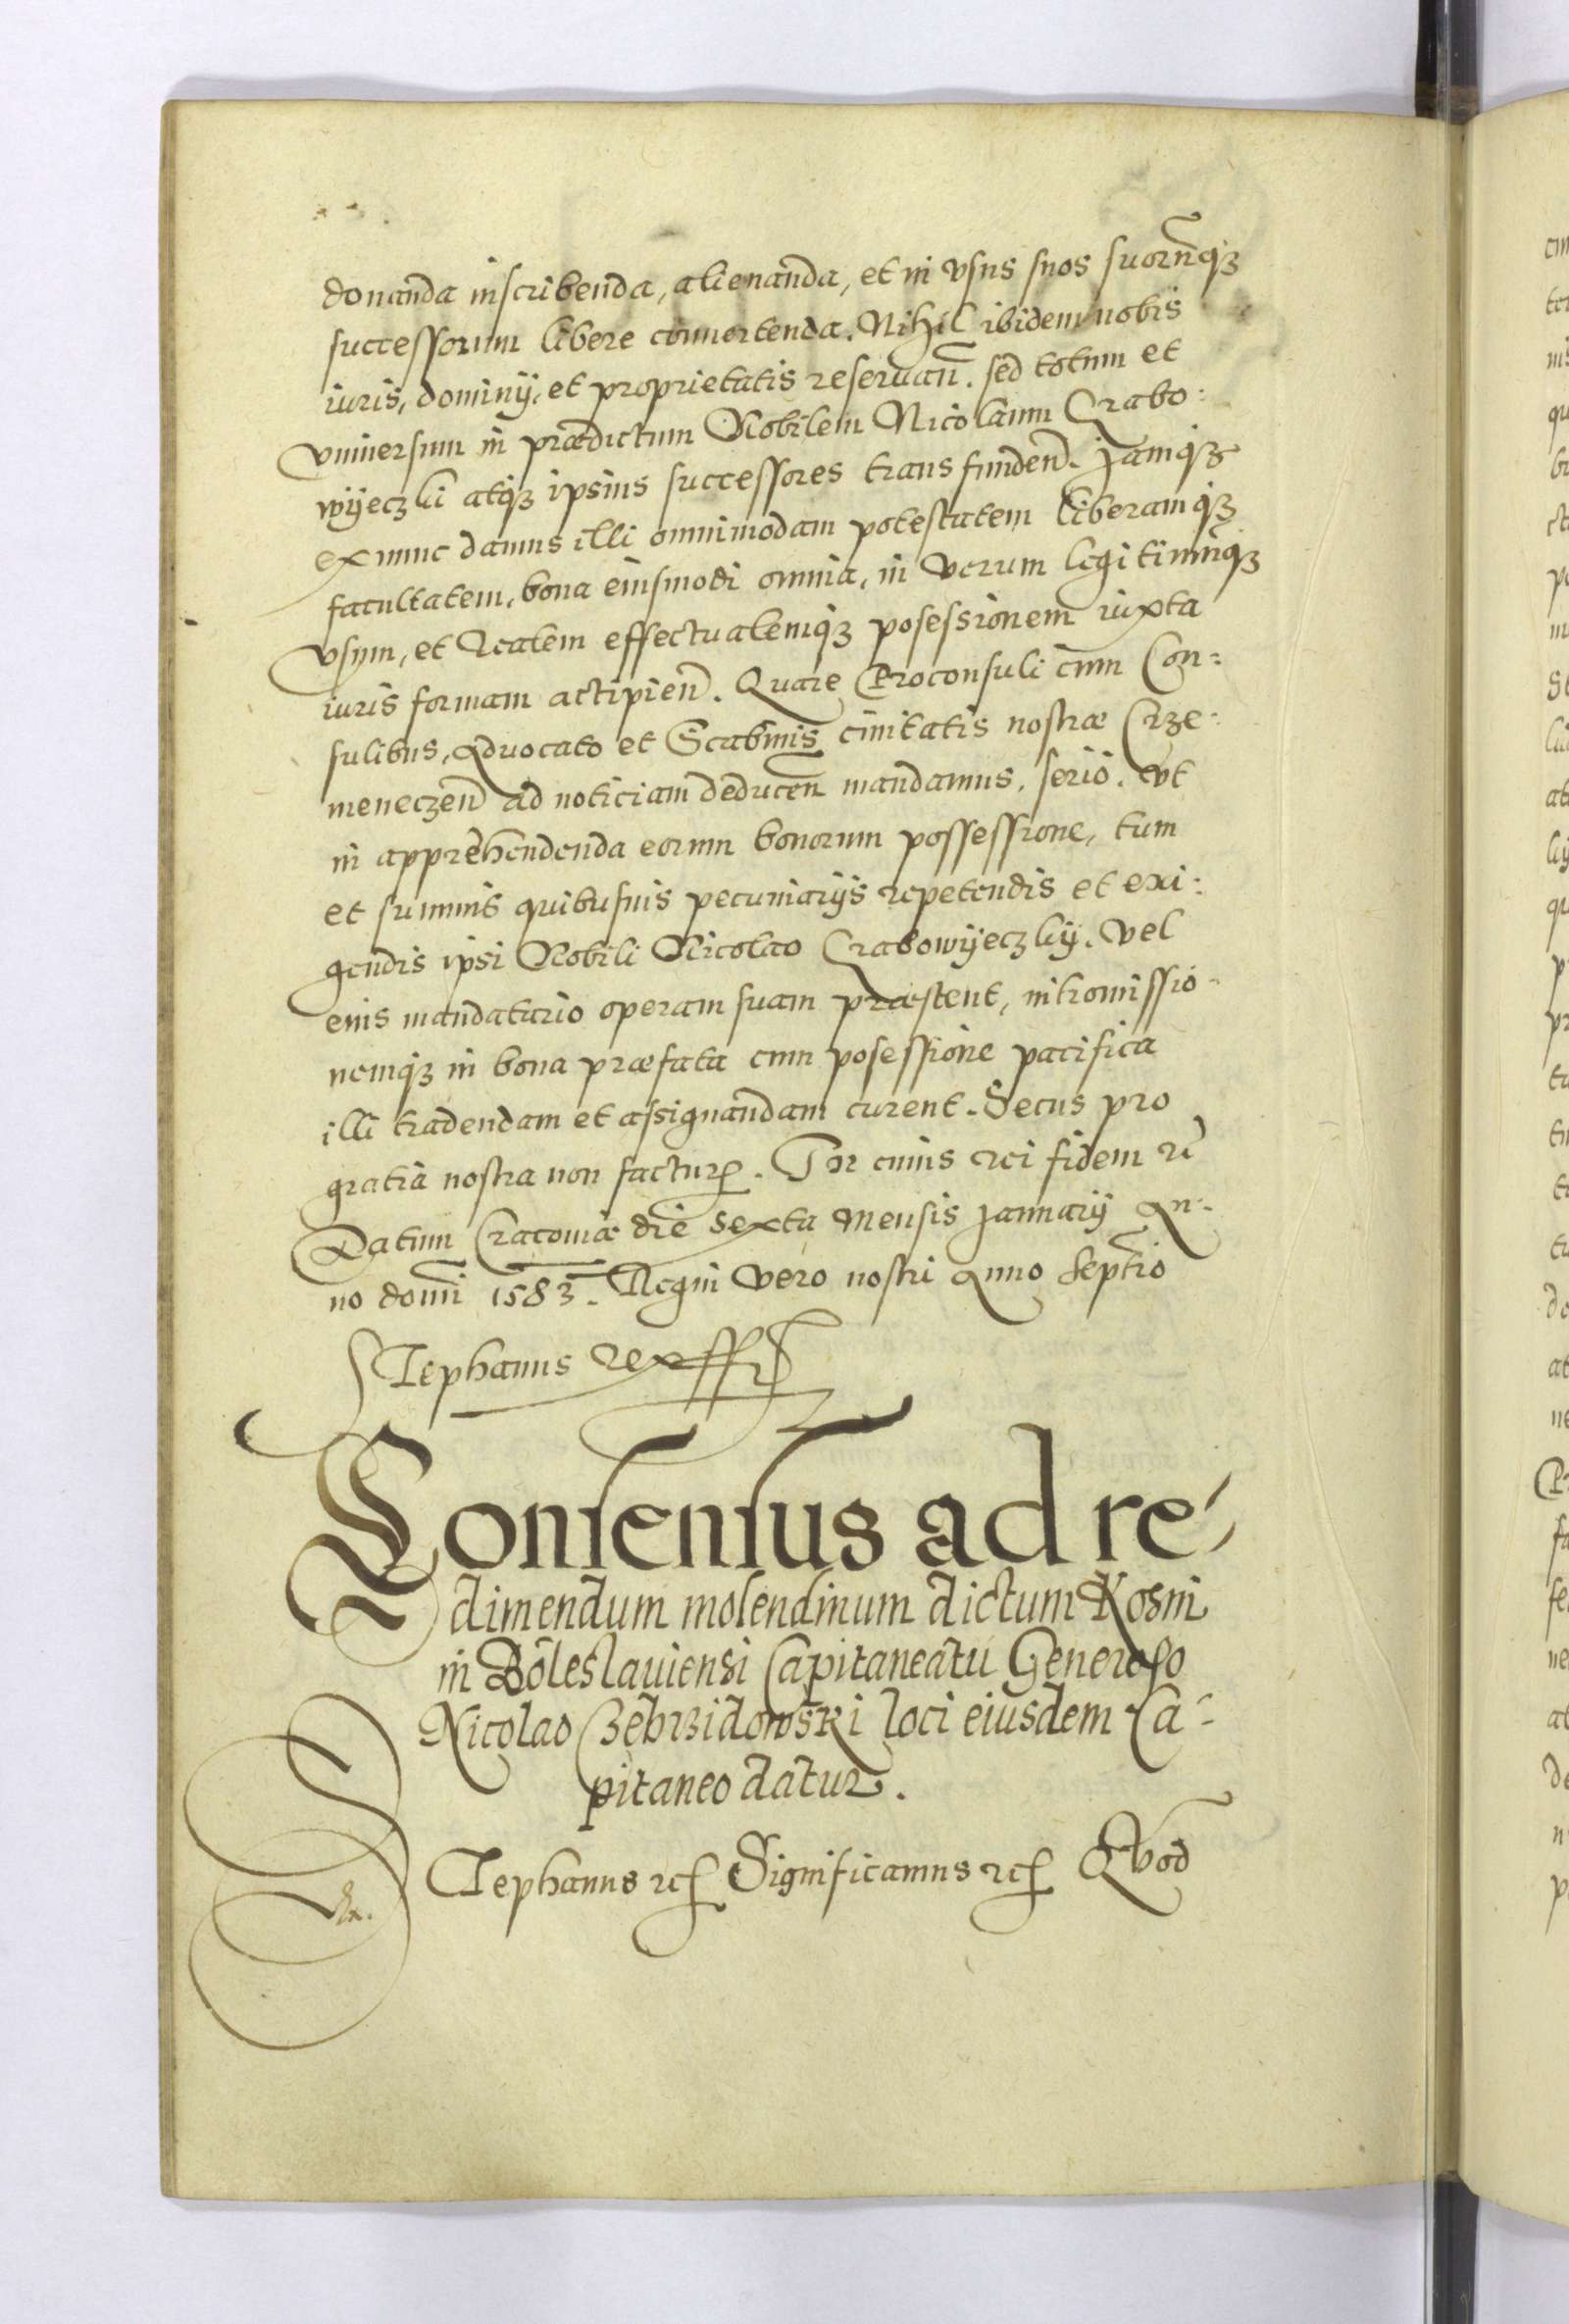 donanda inscribenda, alienanda, et in vsus suos suorūq́ꝫ
successorum libere conuertenda. Nihil ibidem nobis
iuris, dominÿ, et proprietatis reseruan̄. sed totum et
vniuersum in prædictum Nobilem Nicolaum Grabo:
wÿeczki atq́ꝫ ipsius successores transfunden̄. Jamq́ꝫ
ex nunc damus illi omnimodam potestatem liberamq́ꝫ
facultatem, bona eiusmodi omnia, in verum legitimūq́ꝫ
vsum, et Realem effectualemq́ꝫ posessionem iuxta
iuris formam accipien̄. Quare Proconsuli cum Con:
sulibus, Aduocato et Scabinis ciuitatis nostræ Crze:
meneczen̄ ad noticiam deducen̄ mandamus, serio. vt
in apprehendenda eorum bonorum possessione, tum
et summis quibusuis pecuniarÿs repetendis et exi:
gendis ipsi Nobili Nicolao Grabowÿeczkÿ. vel
eius mandatario operam suam præstent, intromissio:
nemq́ꝫ in bona præfata cum posessione pacifica
illi tradendam et assignandam curent. Secus pro
gratia nostra non factur. In cuius rei fidem rc̄
Datum Cracouiæ die Sexta Mensis Januarÿ An:
no domi 1583. Regni vero nostri Anno Septīo
Stephanus Rex ssst
Consensus ad re:
dimendum molendinum dictum Kosin
in Boleslauiensi Capitaneatu Generoso
Nicolao Zebrzidowski loci eiusdem Ca:
pitaneo datur.
Stephanus rc Significamus rc Quod